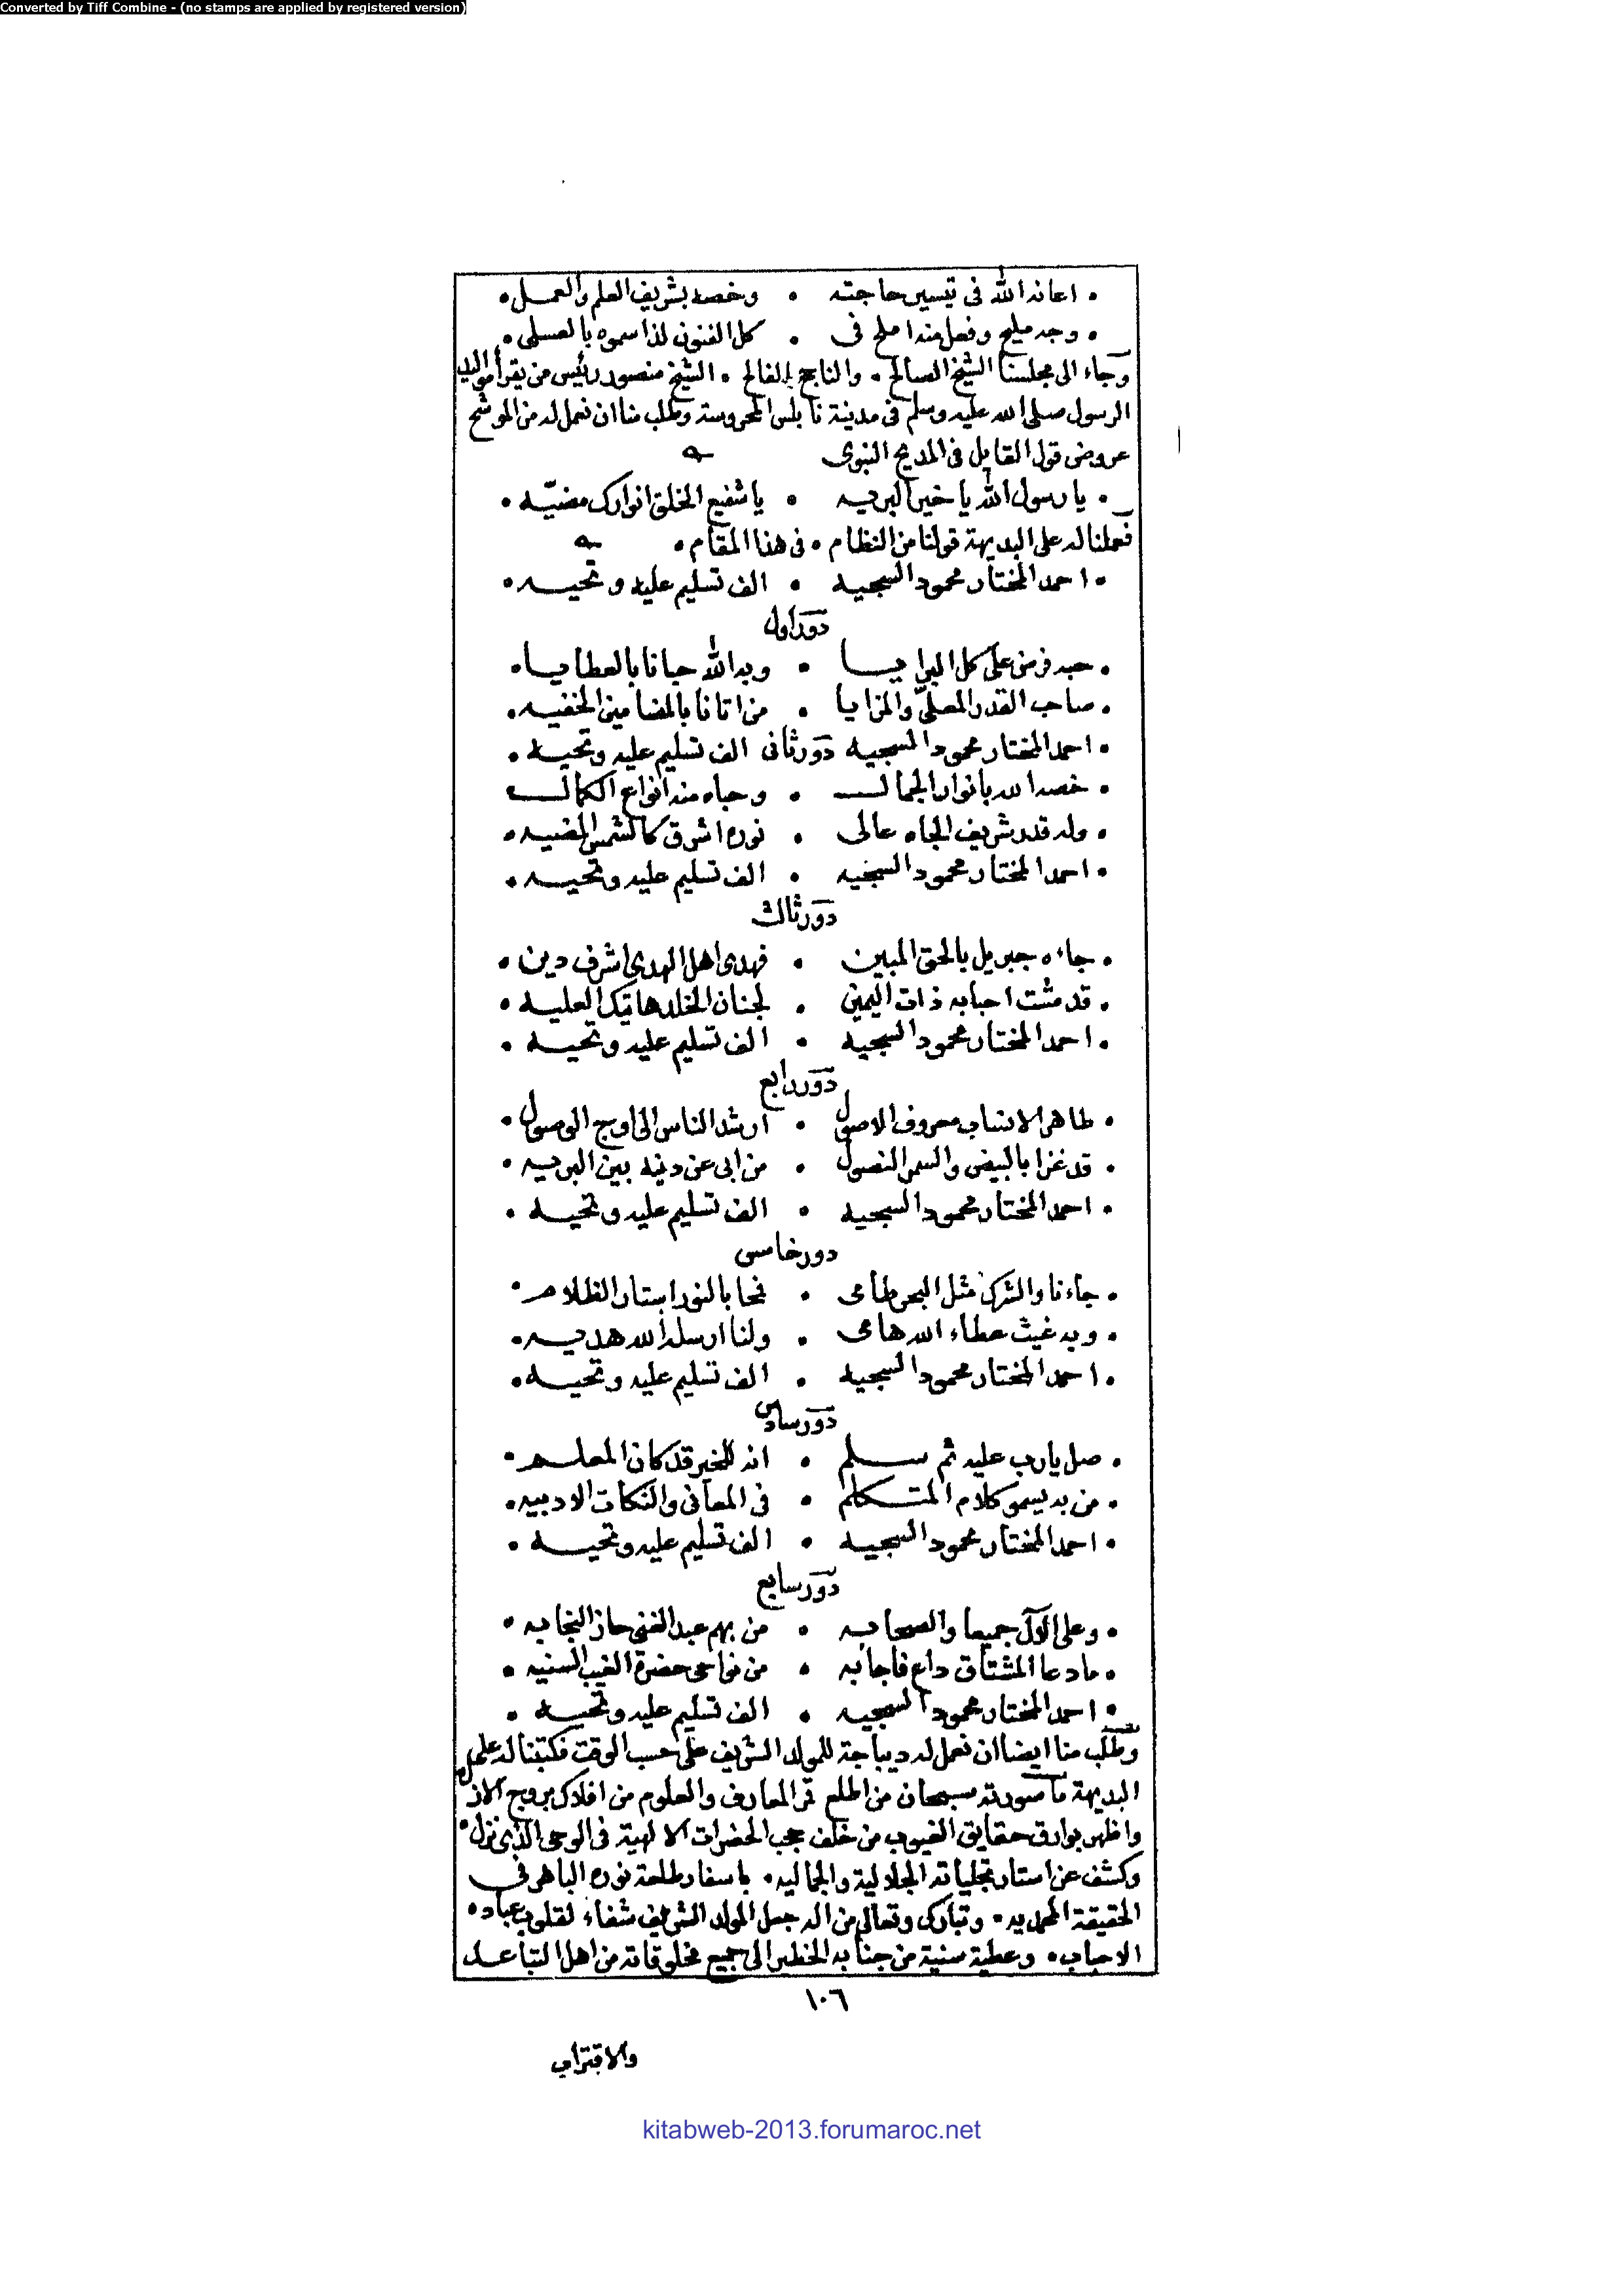 Converted by Tiff Combine - (no stamps are applied by registered version)
• اعانه الله فى تيسير حاجته • وخصه بشريف العلم والعمل •
• وجه مليح وفعل منه املح فى • كل الفنون لذا سموه بالعسلى •
وجاء الى مجلسنا الشيخ الصالح • والناجح الفالح • الشيخ منصور رئيس من يقرأ مواليد
الرسول صلى الله عليه وسلم فى مدينة نابلس المحروسة وطلب منا ان نعمل له من الموشح
عروض قول القايل فى المديح النبوى
• يا رسول الله يا خير البريه • يا شفيع الخلق انوارك مضيّه •
فعملنا له على البديهة قولنا من النظام • فى هذا المقام •
• احمد المختار محمود السجيه • الف تسليم عليه وتحيه •
دور اول
• حبه فرض على كل البرايا • وبه الله حبانا بالعطايا •
• صاحب القدر المعلّى والمزايا • من اتانا بالمضامين الخفيه •
• احمد المختار محمود السجيه دور ثانى الف تسليم عليه وتحيه •
• خصه الله بانوار الجمال • وحباه منه انواع الكمال
• وله قدر شريف الجاه عالى • نوره اشرق كالشمس المضيه •
• احمد المختار محمود السجيه • الف تسليم عليه وتحيه •
دور ثالث
• جاءه جبريل بالحق المبين • فهدى اهل الهدى اشرف دين •
• قد مشت احبابه ذات اليمين • لجنان الخلد هاتيك العليه •
• احمد المختار محمود السجيه • الف تسليم عليه وتحيه •
دور رابع
• طاهر الانساب معروف الاصول • ارشد الناس الى اوج الوصول •
• قد غزا بالبيض والسمر النصول • من ابى عن دينه بين البريه •
• احمد المختار محمود السجيه • الف تسليم عليه وتحيه •
دور خامس
• جاءنا والشرك مثل البحر طامى • فمحا بالنور استار الظلام •
• وبه غيث عطاء الله هامى • ولنا ارسله الله هديه •
• احمد المختار محمود السجيه • الف تسليم عليه وتحيه •
دور سادس
• صل يا رب عليه ثم سلم • انه للخير قد كان المعلم •
• من به يسمو كلام المتكلم • فى المعانى والنكات الادبيه •
• احمد المختار محمود السجيه • الف تسليم عليه وتحيه •
دور سابع
• وعلى الآل جميعا والصحابه • من بهم عبد الغنى حاز النجابه •
• ما دعا المشتاق داع فاجابه • من نواحى حضرة الغيب السنيه •
• احمد المختار محمود السجيه • الف تسليم عليه وتحيه •
وطلب منا ايضا ان نعمل له ديباجة للمولد الشريف على حسب الوقت فكتبنا له على
البديهة ما صورته سبحان من اطلع قمر المعارف والعلوم من افلاك بروج الازل
واظهر بوارق حقايق الغيوب من خلف حجب الحضرات الالهية فى الوحى الذى نزل •
وكشف عن استار تجلياته الجلالية والجماليه • باسفار طلعة نوره الباهر فى
الحقيقة المحمديه • وتبارك وتعالى من اله جعل المولد الشريف شفاء لقلوب عباده
الاحباب • وعطية سنية من جنابه الخطير الى جميع مخلوقاته من اهل التباعد
١٠٦
والاقتراب
kitabweb-2013.forumaroc.net